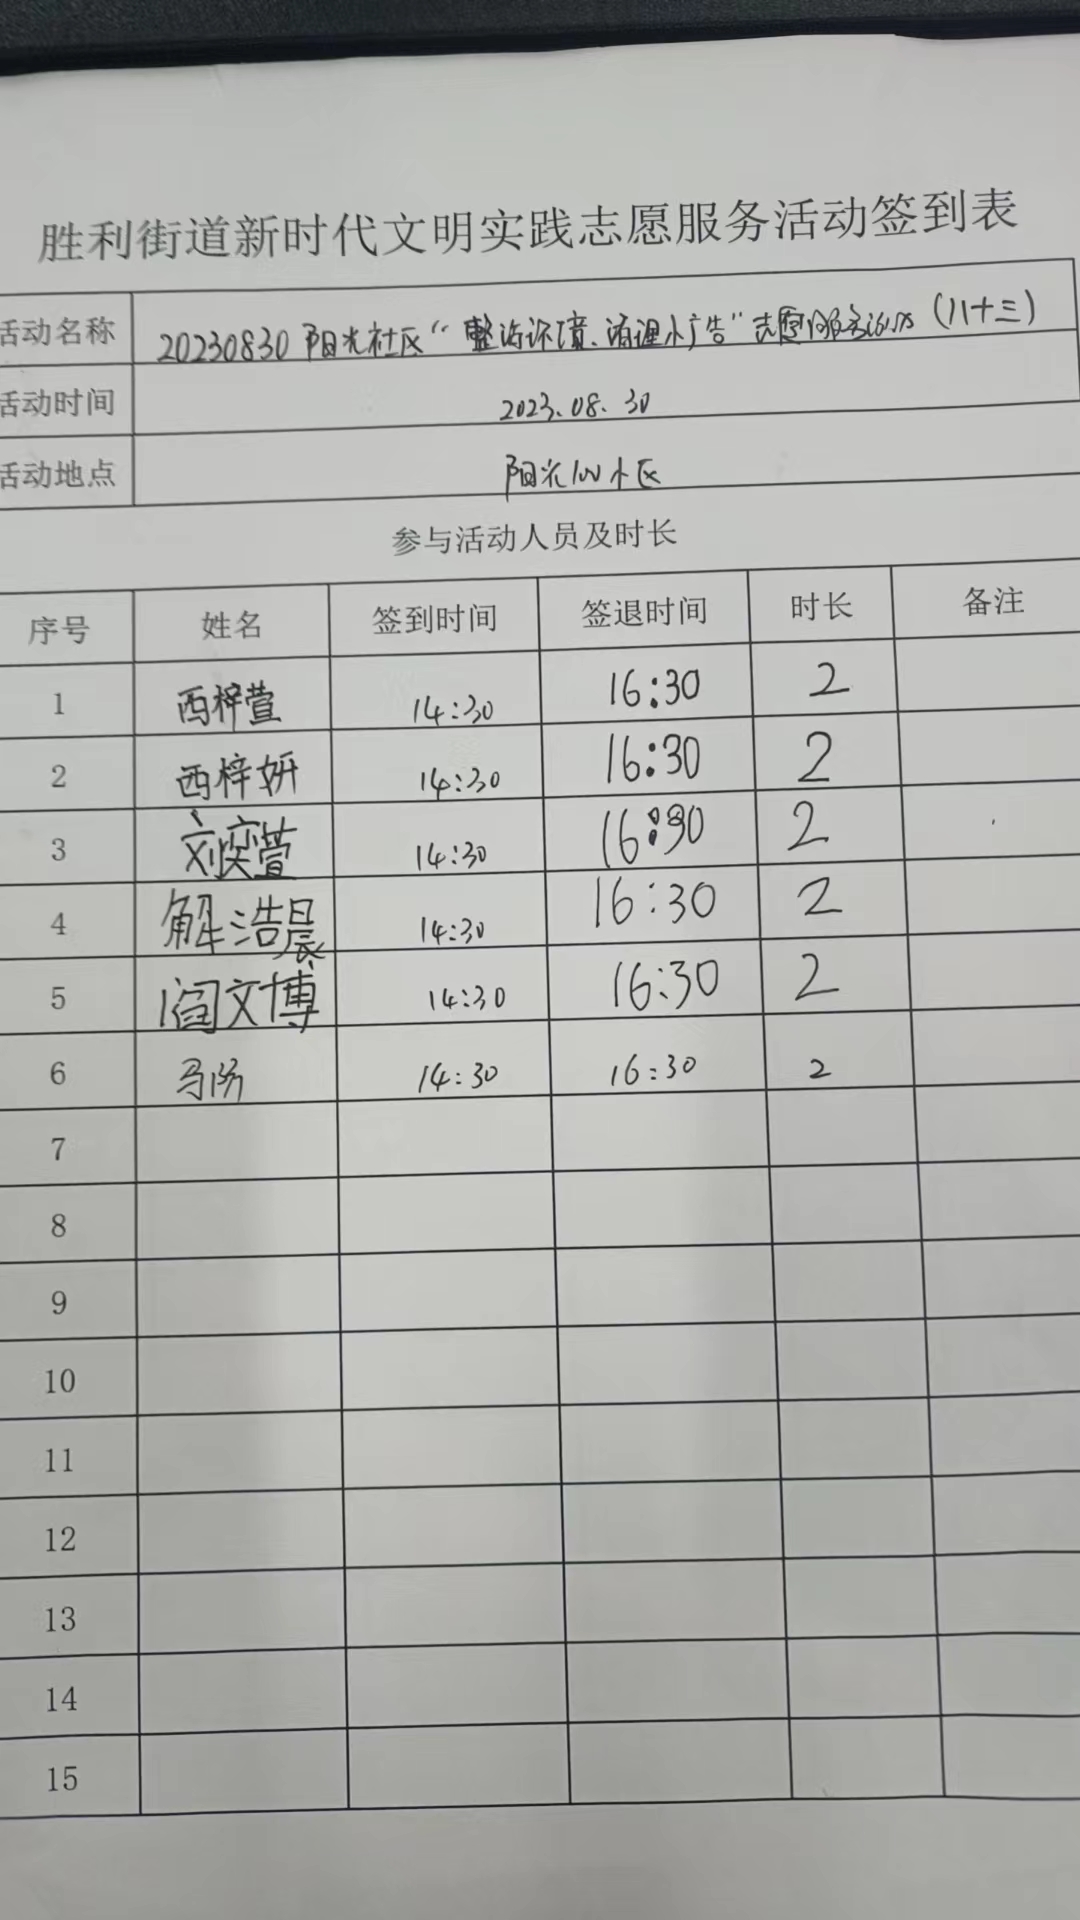 胜利街道新时代文明实践志愿服务活动签到表
活动名称 20230830阳光社区“整治环境、清理小广告”志愿服务活动（八十三）
活动时间 2023.08.30
活动地点 阳光100小区
参与活动人员及时长
序号 姓名 签到时间 签退时间 时长 备注
1 西梓萱 14:30 16:30 2
2 西梓妍 14:30 16:30 2
3 刘奕萱 14:30 16:30 2
4 解浩晨 14:30 16:30 2
5 阎文博 14:30 16:30 2
6 14:30 16:30 2
7
8
9
10
11
12
13
14
15